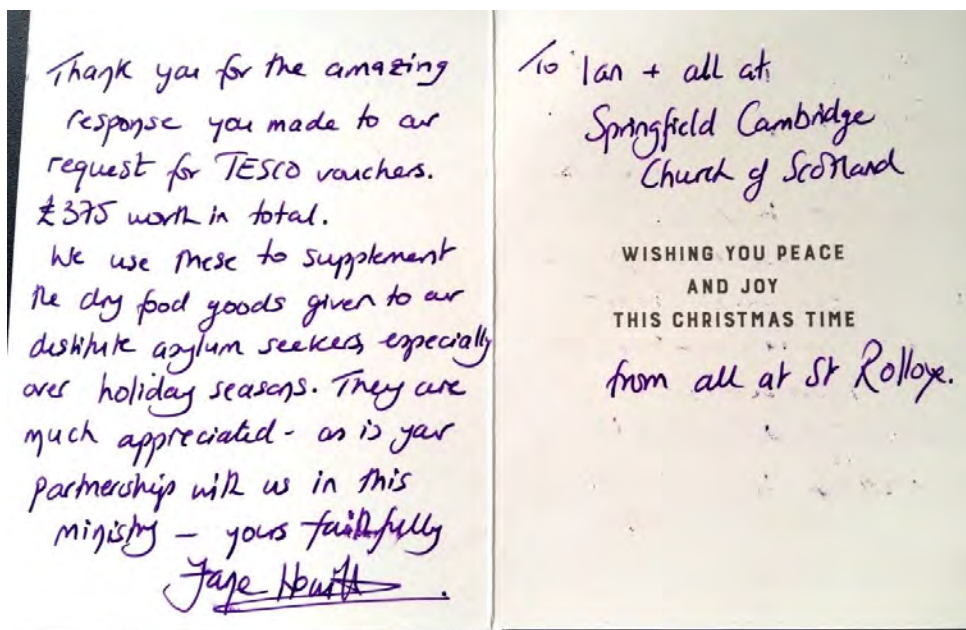 Thank you for the amazing
response you made to our
request for TESCO vouchers.
£375 worth in total.
We use these to supplement
the dry food goods given to our
destitute asylum seekers, especially
over holiday seasons. They are
much appreciated - as is your
partnership with us in this
ministry - yours faithfully
Jane Howitt
To Ian + all at
Springfield Cambridge
Church of Scotland
WISHING YOU PEACE
AND JOY
THIS CHRISTMAS TIME
from all at St Rollox.